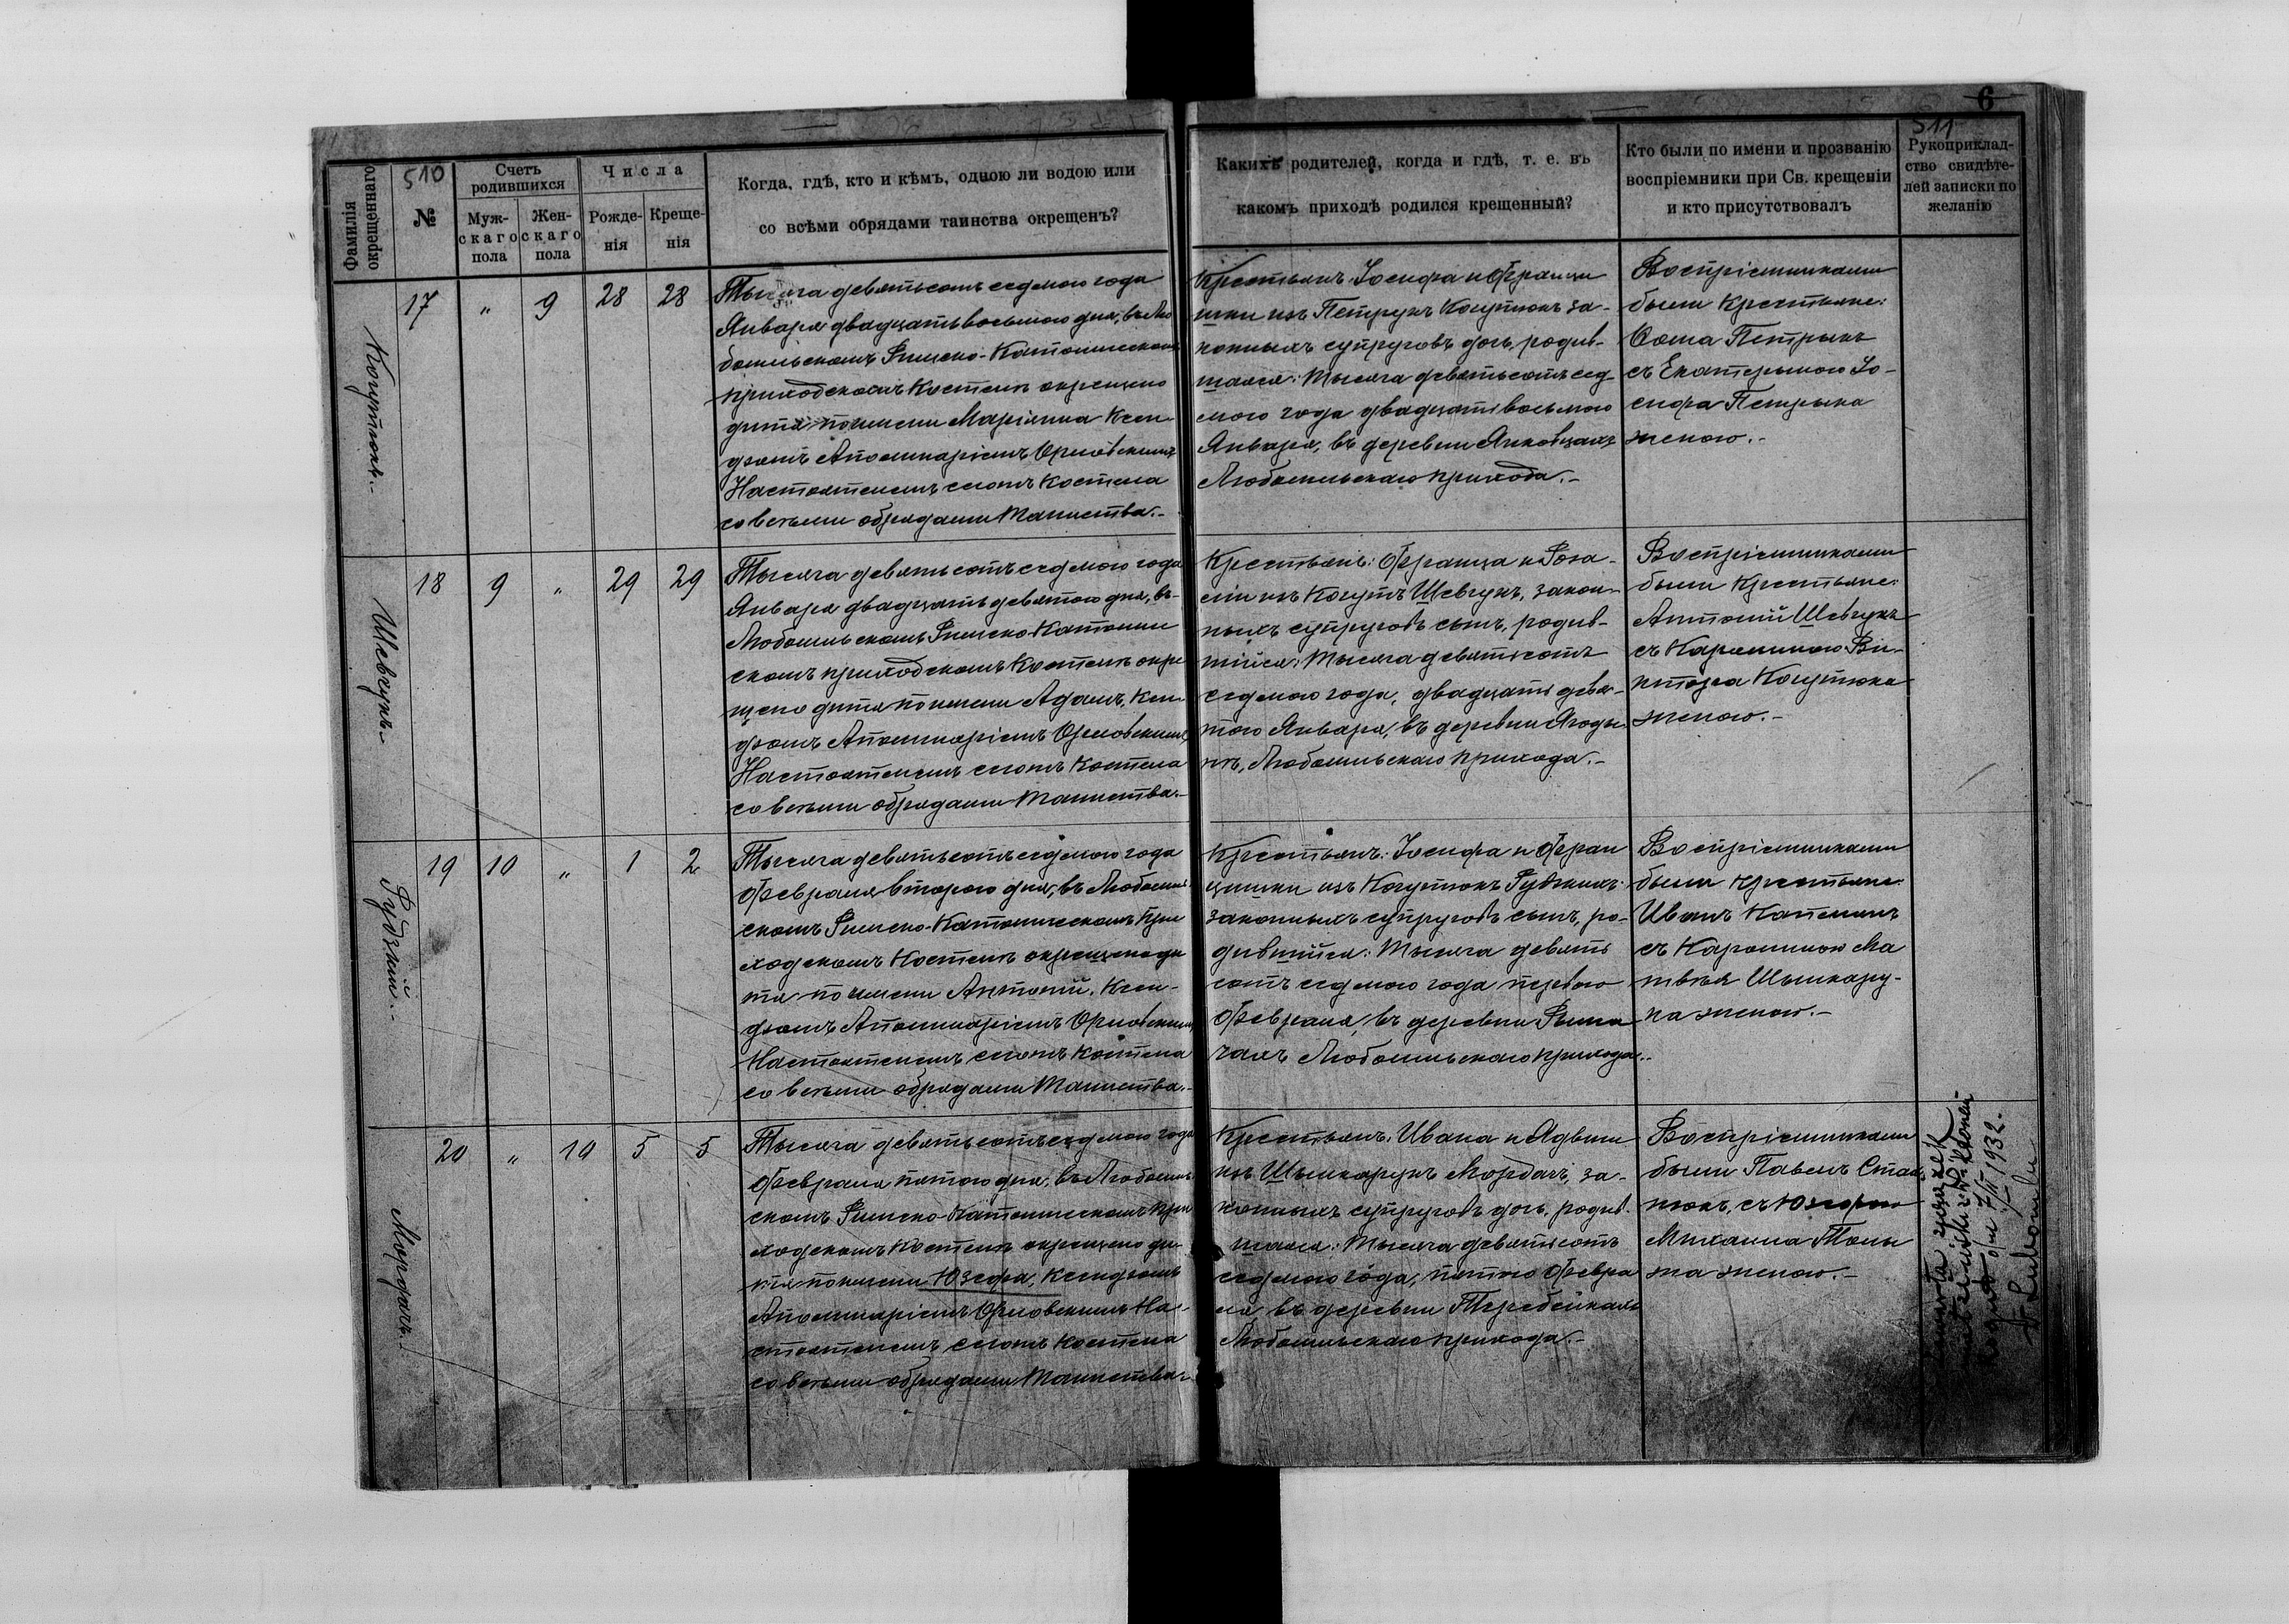 6
510
511
Фамилія окрещеннаго
№
Счетъ родившихся
Муж-
скаго
пола
Жен-
скаго
пола
Числа
Рожде-
нія
Креще-
нія
Когда, гдѣ, кто и кѣмъ, одною ли водою или
со всѣми обрядами таинства окрещенъ?
Какихъ родителей, когда и гдѣ, т. е. въ
какомъ приходѣ родился крещенный?
Кто были по имени и прозванію
воспріемники при Св. крещеніи
и кто присутствовалъ
Рукоприклад-
ство свидѣте-
лей записки по
желанію
Когутюкъ.-
17 " 9 28 28
Тысяча девятьсотъ седьмого года
Января двадцать восьмого дня, въ Лю
бомльскомъ Римско-Католическомъ
приходскомъ Костелѣ окрещено
дитя по имени Маріянна Ксен-
дзомъ Аполинаріемъ Орловскимъ
Настоятелемъ сегожъ Костела
со всѣми обрядами Таинства.-
Крестьянъ Іосифа и Францы
шки изъ Петрукъ Когутюкъ за-
конныхъ супруговъ дочь, родив-
шаяся: Тысяча девятьсотъ сед-
мого года двадцать восьмого
Января, въ деревни Янковцахъ
Любомльскаго прихода.-
Воспріемниками
были Крестьяне:
Ѳома Петрыкъ
съ Екатериною Іо-
сифа Петрыка
женою.-
Шевчукъ.-
18 9 " 29 29
Тысяча девятьсотъ седмого года
Января двадцать девятого дня, въ
Любомльскомъ Римско-Католиче
скомъ приходскомъ Костелѣ окре
щено дитя по имени Адамъ, Ксен
дзомъ Аполинаріемъ Орловскимъ
Настоятелемъ сегожъ Костела
со всѣми обрядами Таинства.-
Крестьянъ: Франца и Роза-
ліи изъ Когутъ Шевчукъ, закон-
ныхъ супруговъ сынъ, родив-
шійся: Тысяча девятьсотъ
седмого года, двадцать девя-
того Января, въ деревни Ягоды-
нѣ, Любомльскаго прихода.-
Воспріемниками
были Крестьяне:
Антоній Шевчукъ
съ Каролиною Ви-
ктора Когутюка
женою.-
Рудзкій.-
19 10 " 1 2
Тысяча девятьсотъ седмого года
Февраля второго дня, въ Любомль
скомъ Римско-Католическомъ При
ходскомъ Костелѣ окрещено ди
тя по имени Антоній, Ксен-
дзомъ Аполинаріемъ Орловскимъ
Настоятелемъ сегожъ Костела
со всѣми обрядами Таинства.-
Крестьянъ: Іосифа и Фран
цишки изъ Когутюкъ Рудзкихъ
законныхъ супруговъ сынъ, ро-
дившійся: Тысяча девять
сотъ седмого года первого
Февраля, въ деревни Рыма
чахъ Любомльскаго прихода.-
Воспріемниками
были Крестьяне
Иванъ
съ Каролиною Ма
твѣя Шынкару-
ка женою.-
Мордачъ.-
20 " 10 5 5
Тысяча девятьсотъ седмого года
Февраля пятого дня, въ Любомль
скомъ Римско-Католическомъ При
ходскомъ Костелѣ окрещено ди-
тя по имени Юзефа, Ксендзомъ
Аполинаріемъ Орловскимъ На-
стоятелемъ сегожъ Костела
со всѣми обрядами Таинства.-
Крестьянъ: Ивана и Ядвиги
изъ Шынкарукъ Мордачъ, за-
конныхъ супруговъ дочь, родив-
шаяся: Тысяча девятьсотъ
седмого года, пятого Февра
ля въ деревни Теребейкахъ
Любомльскаго прихода.-
Воспріемниками
были Павелъ
съ Юзефою
Михаила
женою.-
1932.